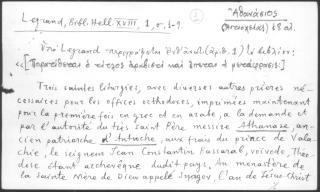 Legrand, Bibl. Hell. XVIII, 1, σ. 1-9.
Ἀθανάσιος
Ὑπὸ Legrand περιγράφεται
Trois saintes liturgies, avec diverses autres prières né-
cessaires pour les offices orthodoxes, imprimées maintenant
pour la première fois en grec et en arabe, a la demande et
par l'autorité du très saint Père messire Athanase, an-
cien patriarche d'Antioche, aux frais du prince de Vala-
chie, le seigneur Jean Constantin Bassarab, voivode, Théo-
dose étant archevêque dudit pays, Au monastère de
la sainte Mère de Dieu appelé Snagov, l'an de Jésus-Christ